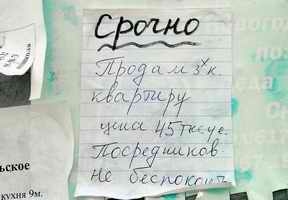 Срочно
Продам 3х к.
квартиру
цена 45 тыс. у.е.
Посредников
не беспокоить
ьское
кухня 9м.